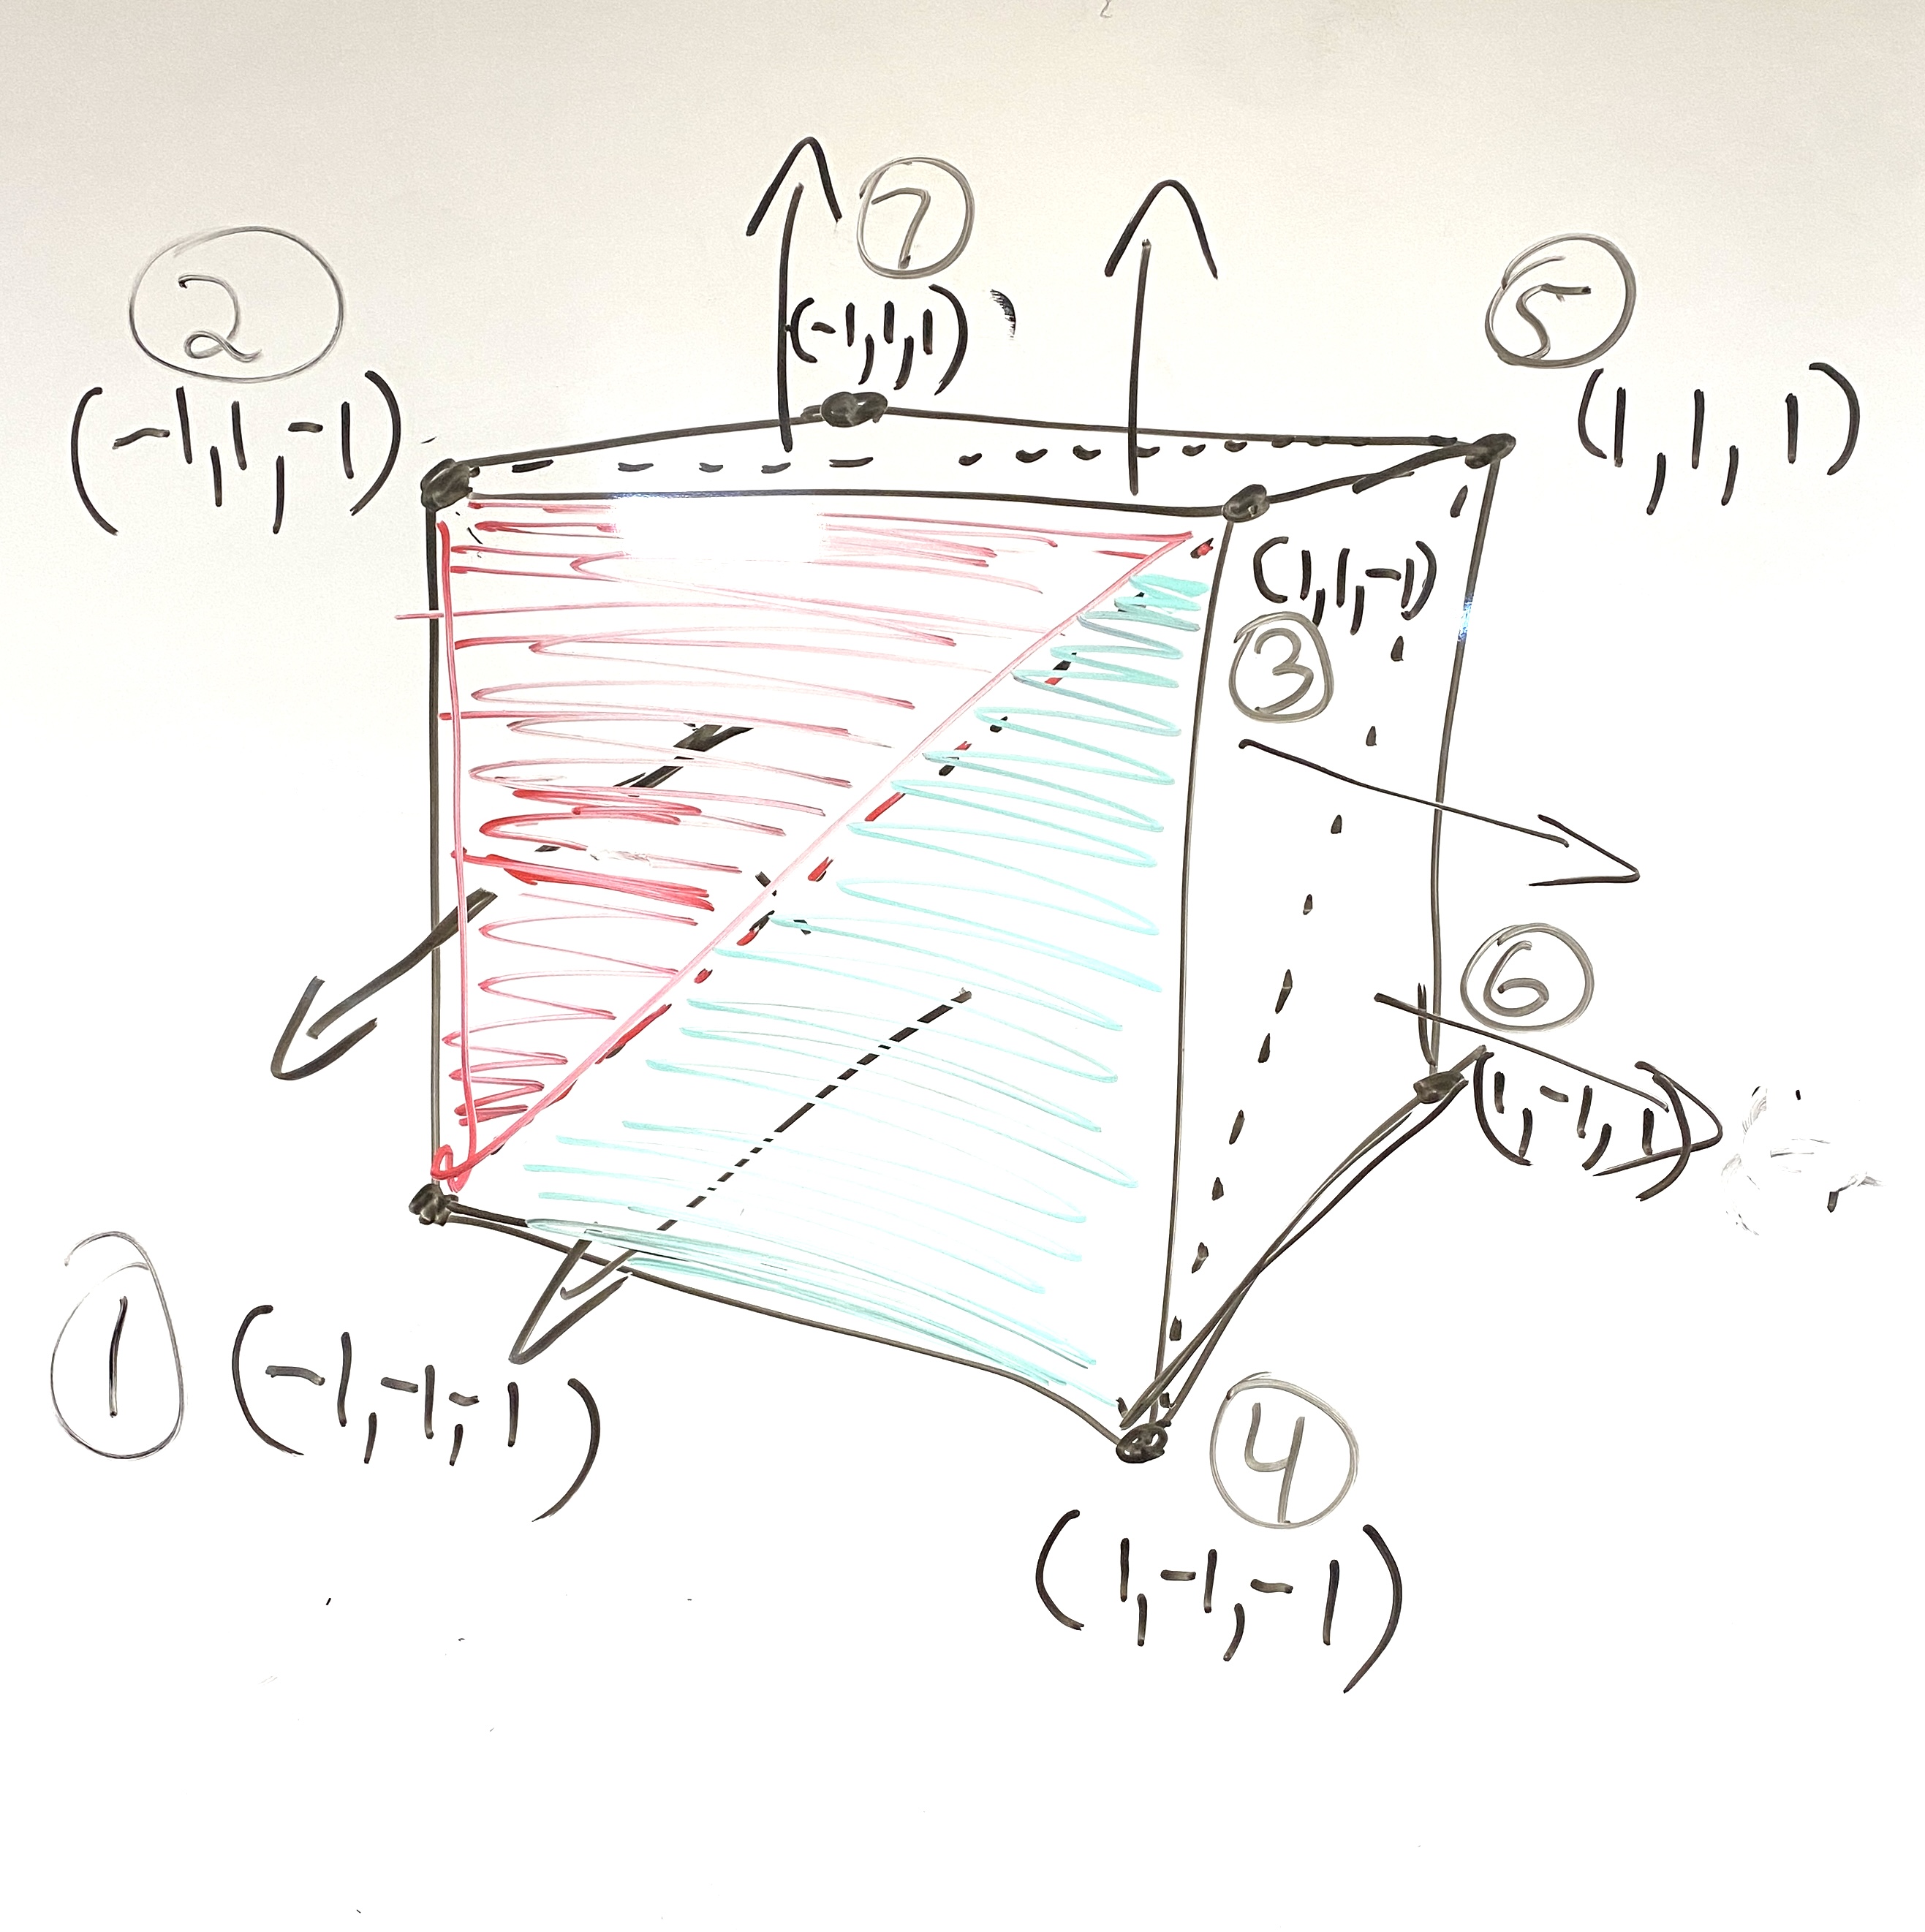 7
(-1,1,1)
2
(-1,1,-1)
5
(1,1,1)
(1,1,-1)
3
6
(1,-1,1)
1
(-1,-1,-1)
4
(1,-1,-1)